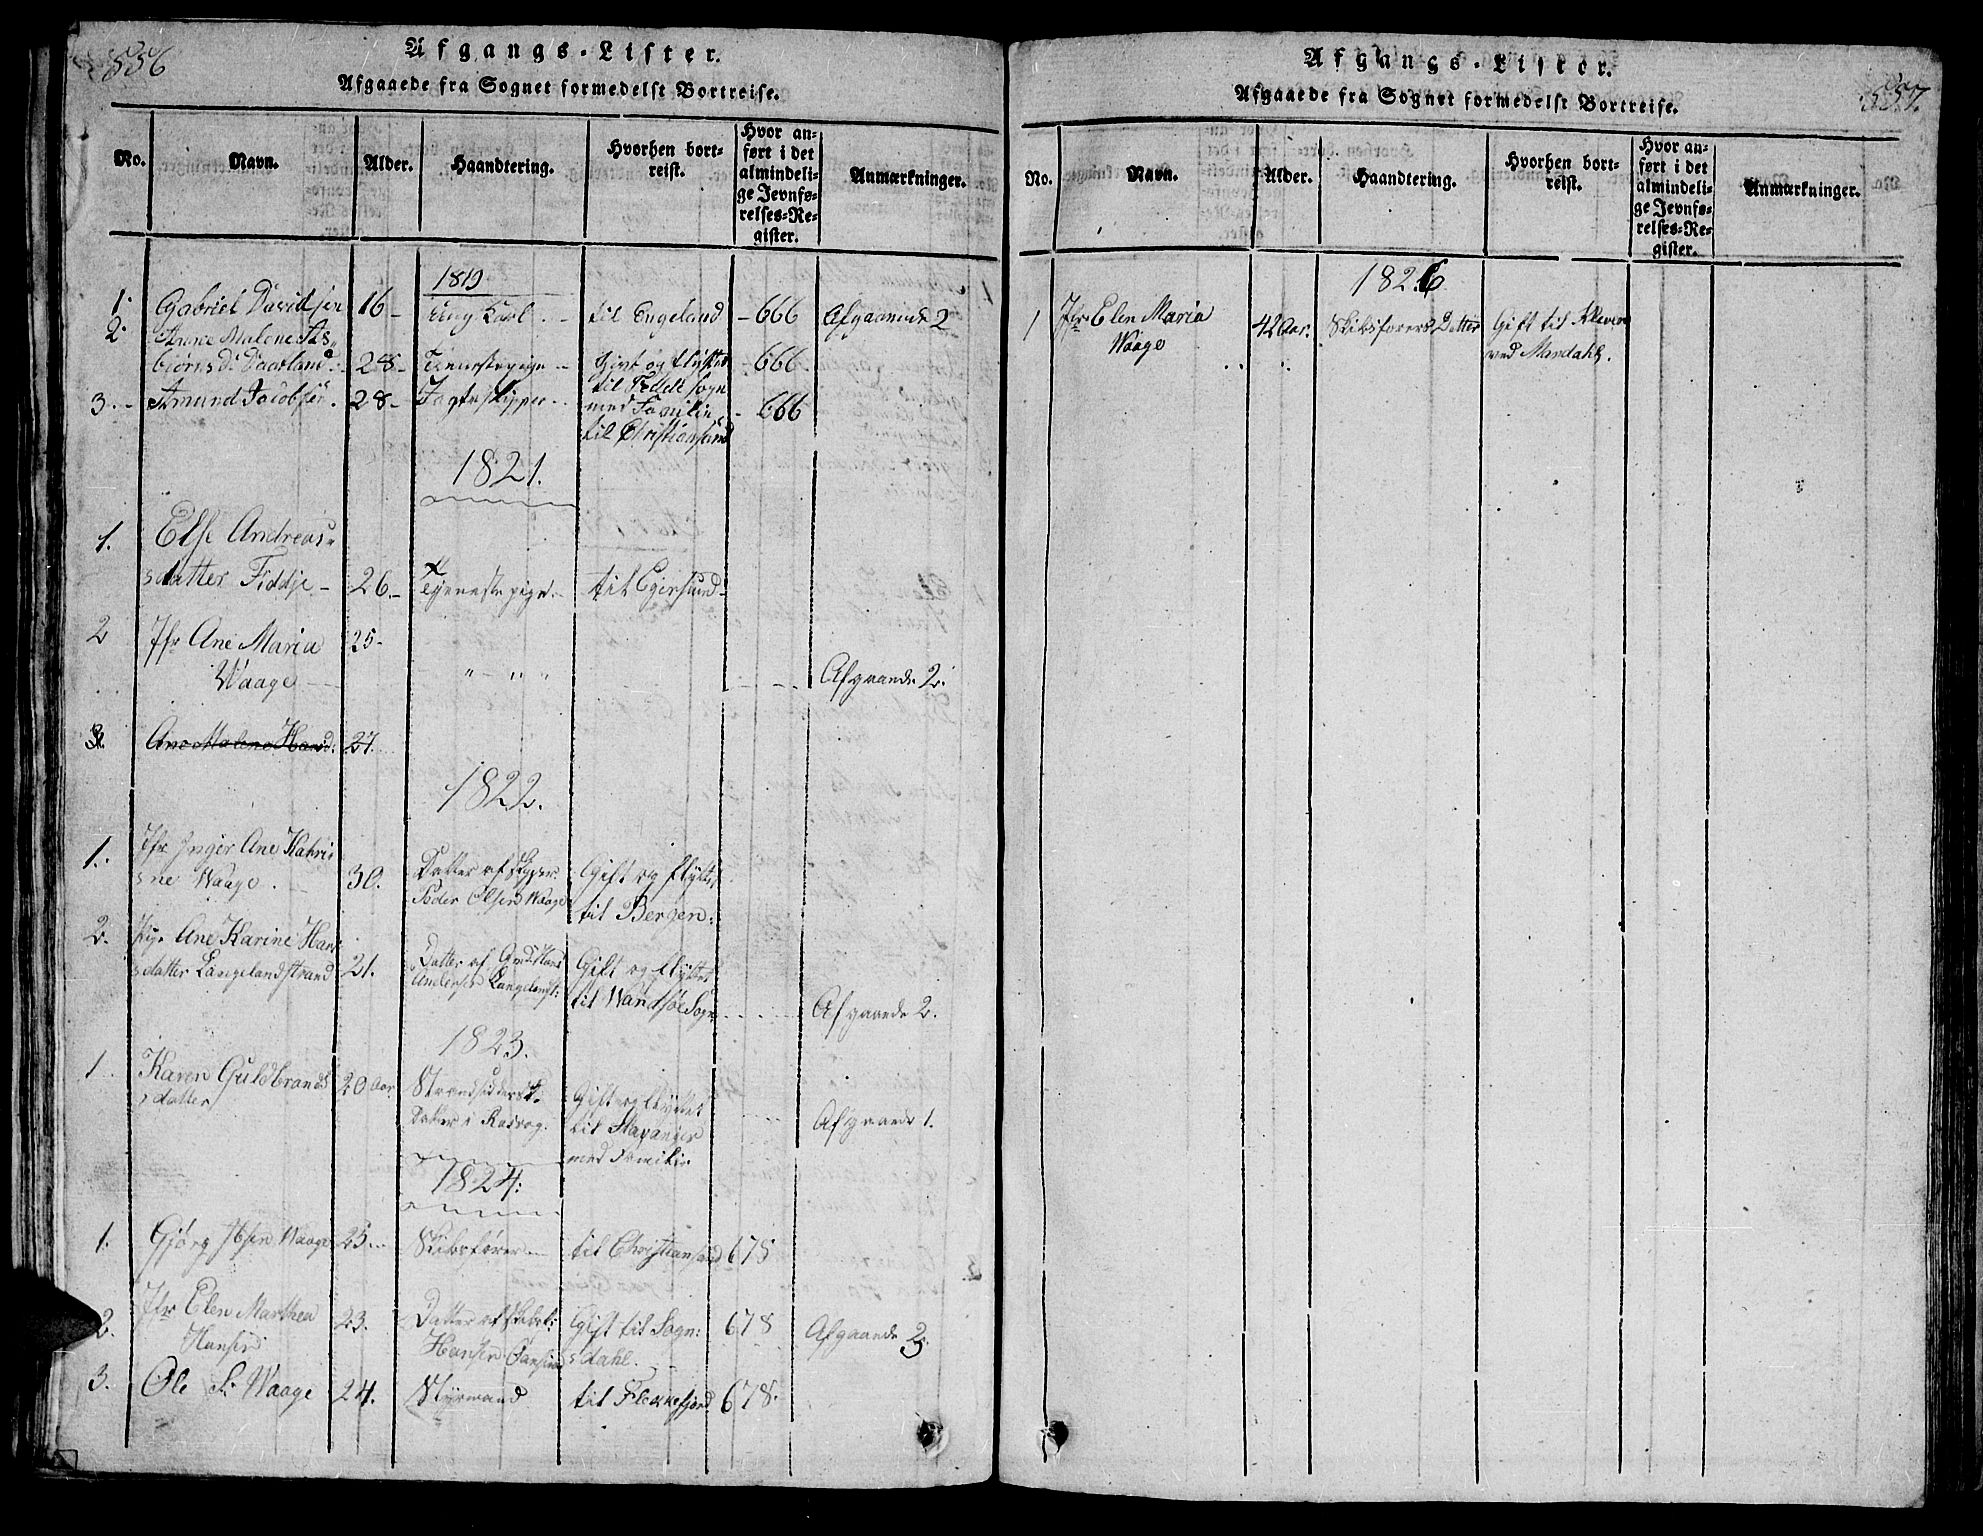 556
Afgangs-Lister.
Afgaaede fra Sognet formedelst Bortreise.
No. Navn. Alder. Haandtering. Hvorhen bortreist. Hvor anført i det almindelige Jevnførelses-Register. Anmærkninger.
1819
1. Gabriel Davidsen 16 - ung Karl. - til Engeland - 666 Afgaaende 2
2. Anne Malene As-
biørnsd. 28 - Tienestepige - Givt og flyttet - 666
til Sogn
3. - Amund Jacobsen. 28 - Jagteskipper - med Familie - 666
til Christiansand
1821.
1. Else Andreas-
datter Fiddje - 26. - Tjenestepige. - til Egersund -
2 Jfr Ane Maria 25 -
Waage - " - " " Afgaaende 2.
3. Ane Malene Hansd. 27.
1822.
1. Jfr Inger Ane Kathri-
ne Waage. 30. Datter af Skipper Gift og flyttet
Peder Olsen Waage til Bergen.
2. Pige Ane Karine Hans-
datter Langelandstrand 21. Datter af Hans Gift og flyttet
Andersen til Sogn Afgaaende 2.
1823.
1 Karen Guldbrands 20 Aar. Strandsidder Gift og flyttet
datter Datter i Rasvog. til Stavanger Afgaaende 1.
med Familie
1824.
1. Gjørg Waage 25. - Skibsfører - til Christiansand 678
2. Jfr Elen Marthea 23. Datter af Gift til Sogn- 678 Afgaaende 3.
Hansen Hansen dahl. -
3. Ole S. Waage 24. Styrmand til Flekkefjord 678.
557.
Afgangs-Lister.
Afgaaede fra Sognet formedelst Bortreise.
No. Navn. Alder. Haandtering. Hvorhen bortreist. Hvor anført i det almindelige Jevnførelses-Register. Anmærkninger.
1826
1 Jfr Elen Maria 42 Aar. Skibsførers Datter Gift til Kleven
Waage ved Mandahl.